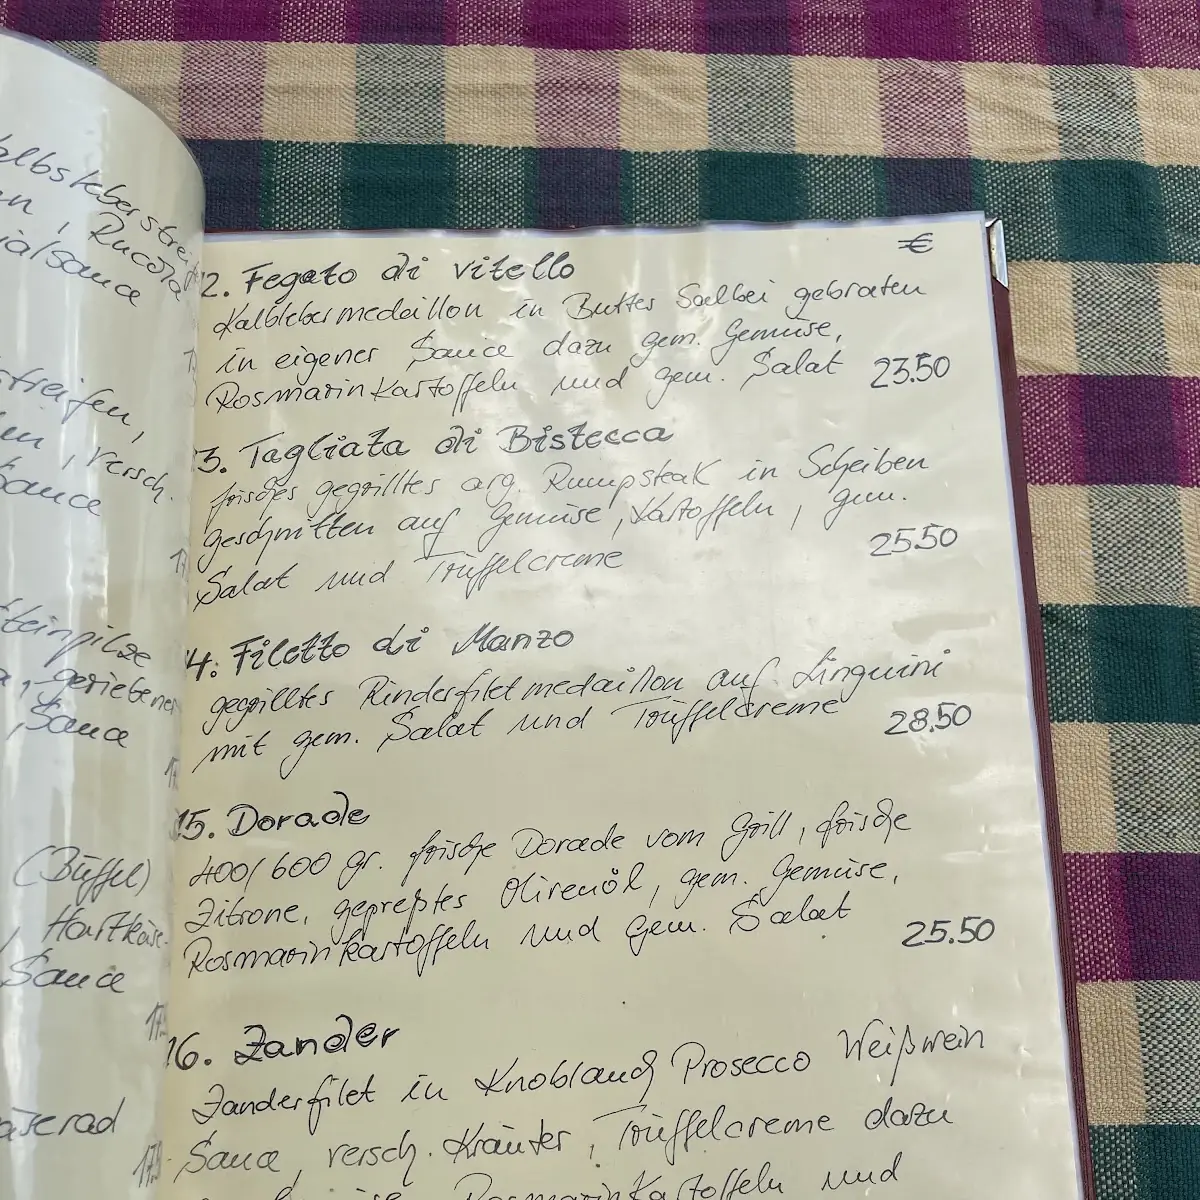 Rucola
streifen,
versch.
Sauce
Steinpilze
geriebener
Sauce
(Büffel)
Hartkäse
Sauce
€
12. Fegato di vitello
Kalblebermedaillon in Butter Salbei gebraten
in eigener Sauce dazu gem. Gemüse,
Rosmarinkartoffeln und gem. Salat 23.50
13. Tagliata di Bistecca
frisches gegrilltes arg. Rumpsteak in Scheiben
geschnitten auf Gemüse, Kartoffeln, gem.
Salat und Trüffelcreme 25.50
14. Filetto di Manzo
gegrilltes Rinderfiletmedaillon auf Linguini
mit gem. Salat und Trüffelcreme 28.50
15. Dorade
400/600 gr. frische Dorade vom Grill, frische
Zitrone, gepreßtes Olivenöl, gem. Gemüse,
Rosmarinkartoffeln und gem. Salat 25.50
16. Zander
Zanderfilet in Knoblauch Prosecco Weißwein
Sauce, versch. Kräuter, Trüffelcreme dazu
Rosmarinkartoffeln und